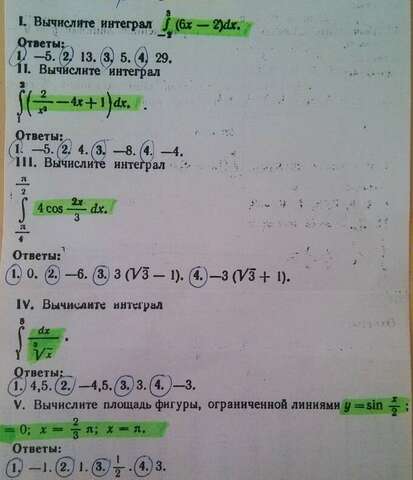 I. Вычислите интеграл ∫₋₂³ (6x — 2)dx.
Ответы:
1. —5. 2. 13. 3. 5. 4. 29.
II. Вычислите интеграл
∫₁² (2/x² — 4x + 1) dx.
Ответы:
1. —5. 2. 4. 3. —8. 4. —4.
III. Вычислите интеграл
∫_{π/4}^{π/2} 4 cos 2x/3 dx.
Ответы:
1. 0. 2. —6. 3. 3 (√3 — 1). 4. —3 (√3 + 1).
IV. Вычислите интеграл
∫₁⁸ dx/∛x.
Ответы:
1. 4,5. 2. —4,5. 3. 3. 4. —3.
V. Вычислите площадь фигуры, ограниченной линиями y = sin x/2;
= 0; x = 2/3 π; x = π.
Ответы:
1. —1. 2. 1. 3. 1/2. 4. 3.